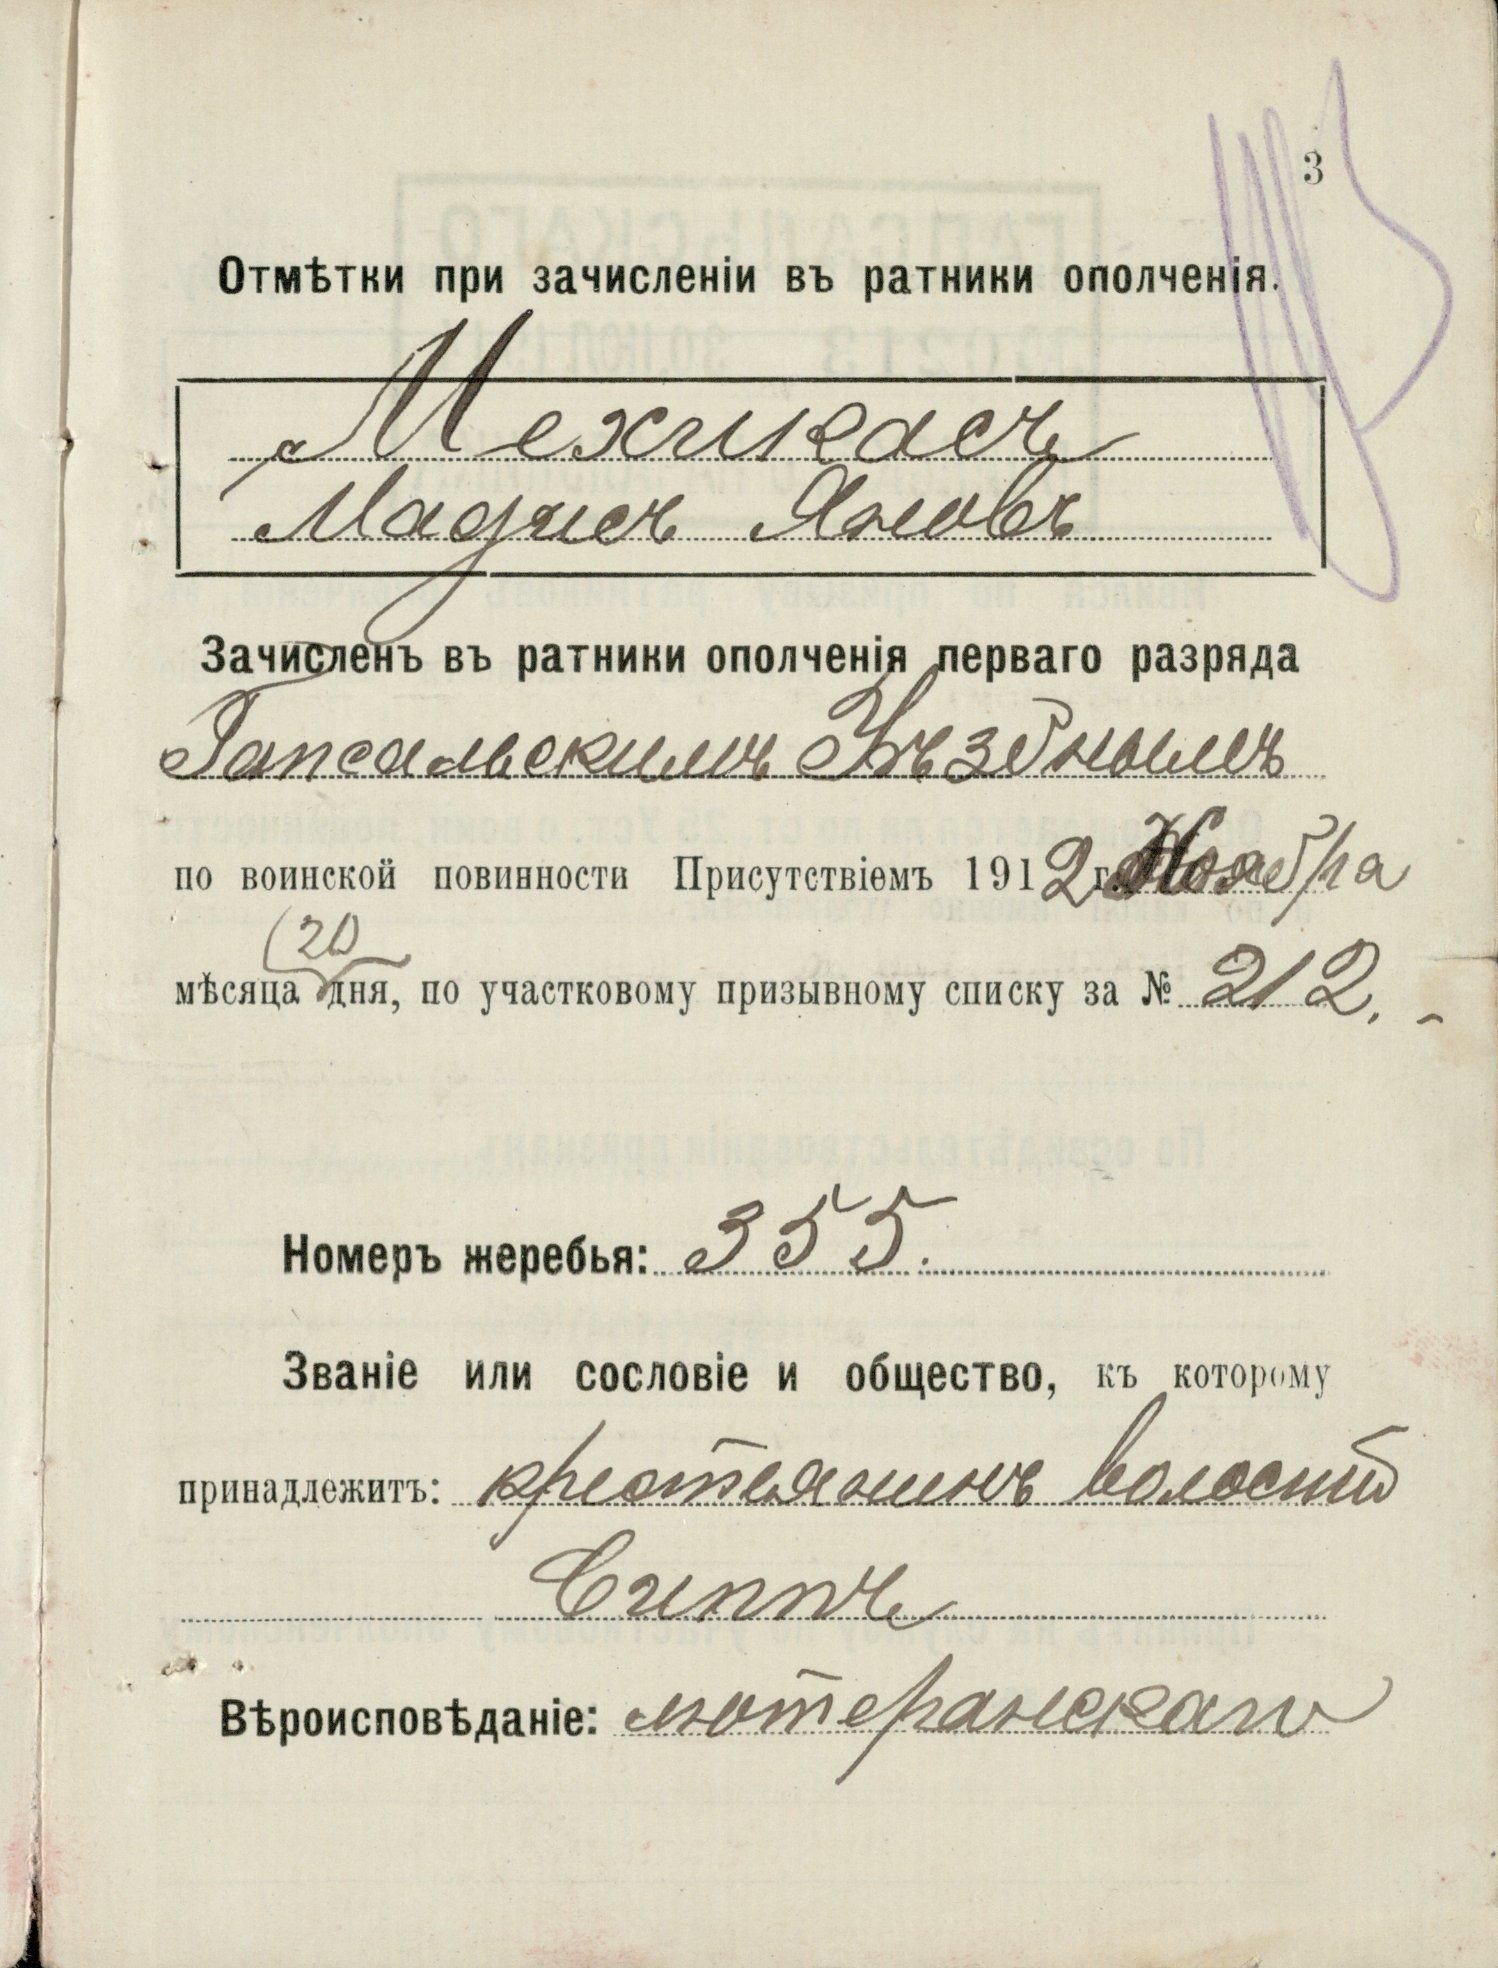 3
Отмѣтки при зачисленіи въ ратники ополченія.
Мехикасъ
Мадисъ Яновъ
Зачисленъ въ ратники ополченія перваго разряда
Гапсальскимъ Уѣзднымъ
по воинской повинности Присутствіемъ 1912 г. Ноября
20
мѣсяца дня, по участковому призывному списку за № 212.
Номеръ жеребья: 355.
Званіе или сословіе и общество, къ которому
принадлежитъ: крестьянинъ волости
Сиппъ
Вѣроисповѣданіе: лютеранскаго